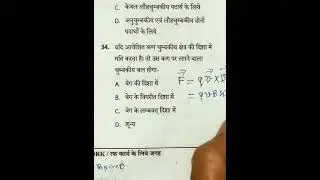 C. केवल लौहचुम्बकीय पदार्थ के लिये
D. अनुचुम्बकीय एवं लौहचुम्बकीय दोनों
पदार्थों के लिये
34. यदि आवेशित कण चुम्बकीय क्षेत्र की दिशा में
गति करता है। तो उस कण पर लगने वाला
चुम्बकीय बल होगा-
A. वेग की दिशा में
B. वेग के विपरीत दिशा में
C. वेग के लम्बवत् दिशा में
D. शून्य
F = q v X B
= q v B
ORK / रफ कार्य के लिये जगह